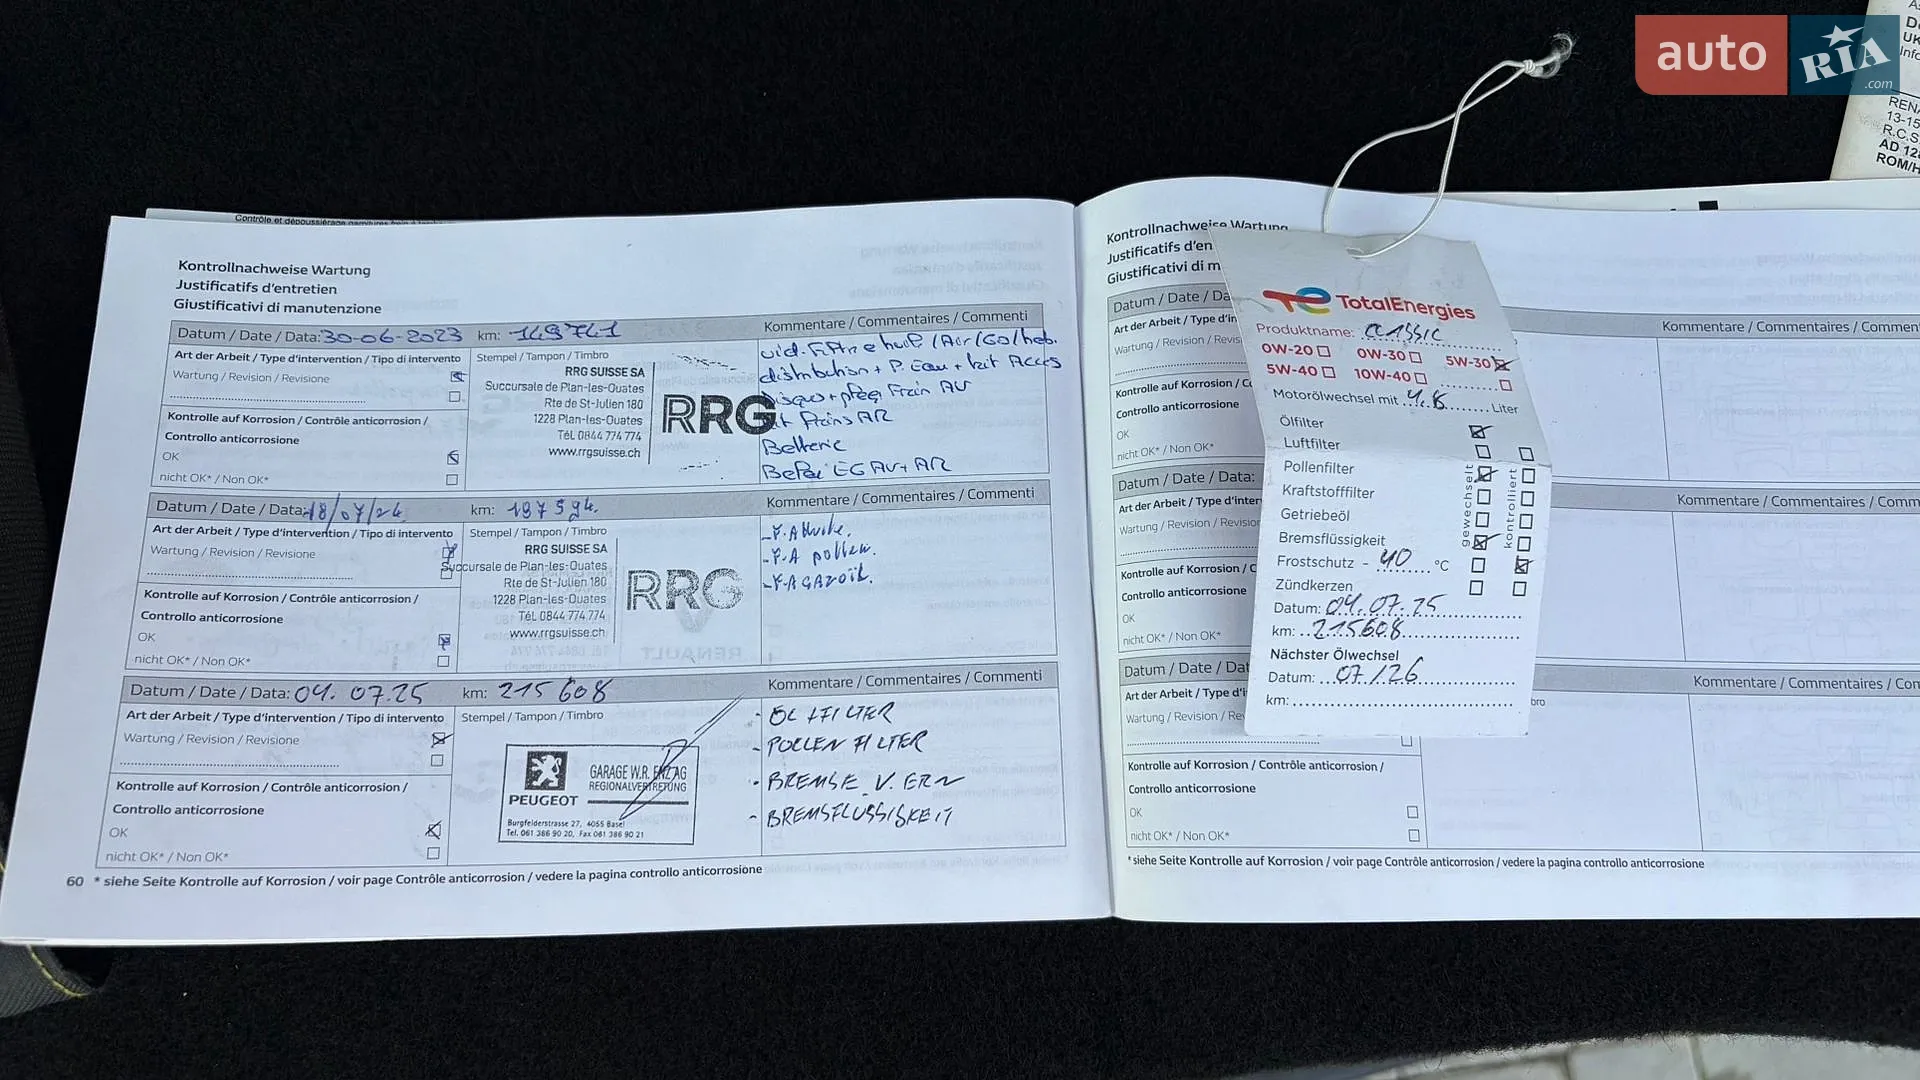 auto RIA.com
RENA
13-15
R.C.S
AD 12
ROM/H
Contrôle et dépoussiérage garnitures frein à
Kontrollnachweise Wartung
Justificatifs d'entretien
Giustificativi di manutenzione
Datum / Date / Data: 30-06-2023 km: 149741 Kommentare / Commentaires / Commenti
Art der Arbeit / Type d'intervention / Tipo di intervento
Wartung / Revision / Revisione
Kontrolle auf Korrosion / Contrôle anticorrosion /
Controllo anticorrosione
OK
nicht OK* / Non OK*
Stempel / Tampon / Timbro
RRG SUISSE SA
Succursale de Plan-les-Ouates
Rte de St-Julien 180
1228 Plan-les-Ouates
Tél. 0844 774 774
www.rrgsuisse.ch
RRG
distribution + P. Eau + kit Acces
Frein AV
Freins AR
Batterie
AV + AR
Datum / Date / Data: 18/07/24 km: 197594. Kommentare / Commentaires / Commenti
Art der Arbeit / Type d'intervention / Tipo di intervento
Wartung / Revision / Revisione
Kontrolle auf Korrosion / Contrôle anticorrosion /
Controllo anticorrosione
OK
nicht OK* / Non OK*
Stempel / Tampon / Timbro
RRG SUISSE SA
Succursale de Plan-les-Ouates
Rte de St-Julien 180
1228 Plan-les-Ouates
Tél. 0844 774 774
www.rrgsuisse.ch
RRG
- F. A pollen.
- F. A GAZOIL.
Datum / Date / Data: 04. 07. 25 km: 215 608 Kommentare / Commentaires / Commenti
Art der Arbeit / Type d'intervention / Tipo di intervento
Wartung / Revision / Revisione
Kontrolle auf Korrosion / Contrôle anticorrosion /
Controllo anticorrosione
OK
nicht OK* / Non OK*
Stempel / Tampon / Timbro
PEUGEOT
GARAGE W.R. ENZ AG
REGIONALVERTRETUNG
Burgfelderstrasse 27, 4055 Basel
Tel. 061 386 90 20, Fax 061 386 90 21
- ÖL + FILTER
- POLLEN FILTER
- BREMSE V. ERN
- BREMSFLÜSSIGKEIT
60 * siehe Seite Kontrolle auf Korrosion / voir page Contrôle anticorrosion / vedere la pagina controllo anticorrosione
Kontrollnachweise Wartung
Justificatifs d'en
Giustificativi di m
Datum / Date / Da
Kommentare / Commentaires / Commen
Art der Arbeit / Type d'in
Wartung / Revision / Revis
Kontrolle auf Korrosion / Co
Controllo anticorrosione
OK
nicht OK* / Non OK*
Datum / Date / Data:
Kommentare / Commentaires / Comm
Art der Arbeit / Type d'inter
Wartung / Revision / Revision
Kontrolle auf Korrosion / C
Controllo anticorrosione
OK
nicht OK* / Non OK*
Datum / Date / Dat
Kommentare / Commentaires / Com
Art der Arbeit / Type d'i
Wartung / Revision / Rev
bro
Kontrolle auf Korrosion / Contrôle anticorrosion /
Controllo anticorrosione
OK
nicht OK* / Non OK*
* siehe Seite Kontrolle auf Korrosion / voir page Contrôle anticorrosion / vedere la pagina controllo anticorrosione
TotalEnergies
Produktname: CLASSIC
0W-20 0W-30 5W-30
5W-40 10W-40
Motorölwechsel mit 4.8 Liter
Ölfilter
Luftfilter
Pollenfilter
Kraftstofffilter
Getriebeöl
Bremsflüssigkeit
gewechselt
kontrolliert
Frostschutz - 40 °C
Zündkerzen
Datum: 04.07.25
km: 215608
Nächster Ölwechsel
Datum: 07/26
km: